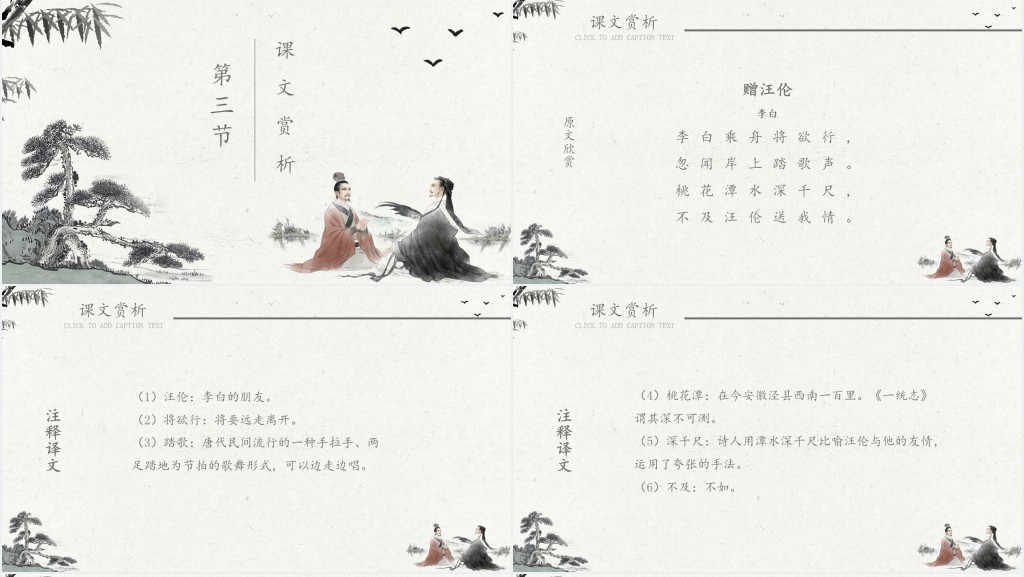 第三节
课文赏析
课文赏析
CLICK TO ADD CAPTION TEXT
原文欣赏
赠汪伦
李白
李白乘舟将欲行，
忽闻岸上踏歌声。
桃花潭水深千尺，
不及汪伦送我情。
课文赏析
CLICK TO ADD CAPTION TEXT
注释译文
（1）汪伦：李白的朋友。
（2）将欲行：将要远走离开。
（3）踏歌：唐代民间流行的一种手拉手、两
足踏地为节拍的歌舞形式，可以边走边唱。
课文赏析
CLICK TO ADD CAPTION TEXT
注释译文
（4）桃花潭：在今安徽泾县西南一百里。《一统志》
谓其深不可测。
（5）深千尺：诗人用潭水深千尺比喻汪伦与他的友情，
运用了夸张的手法。
（6）不及：不如。